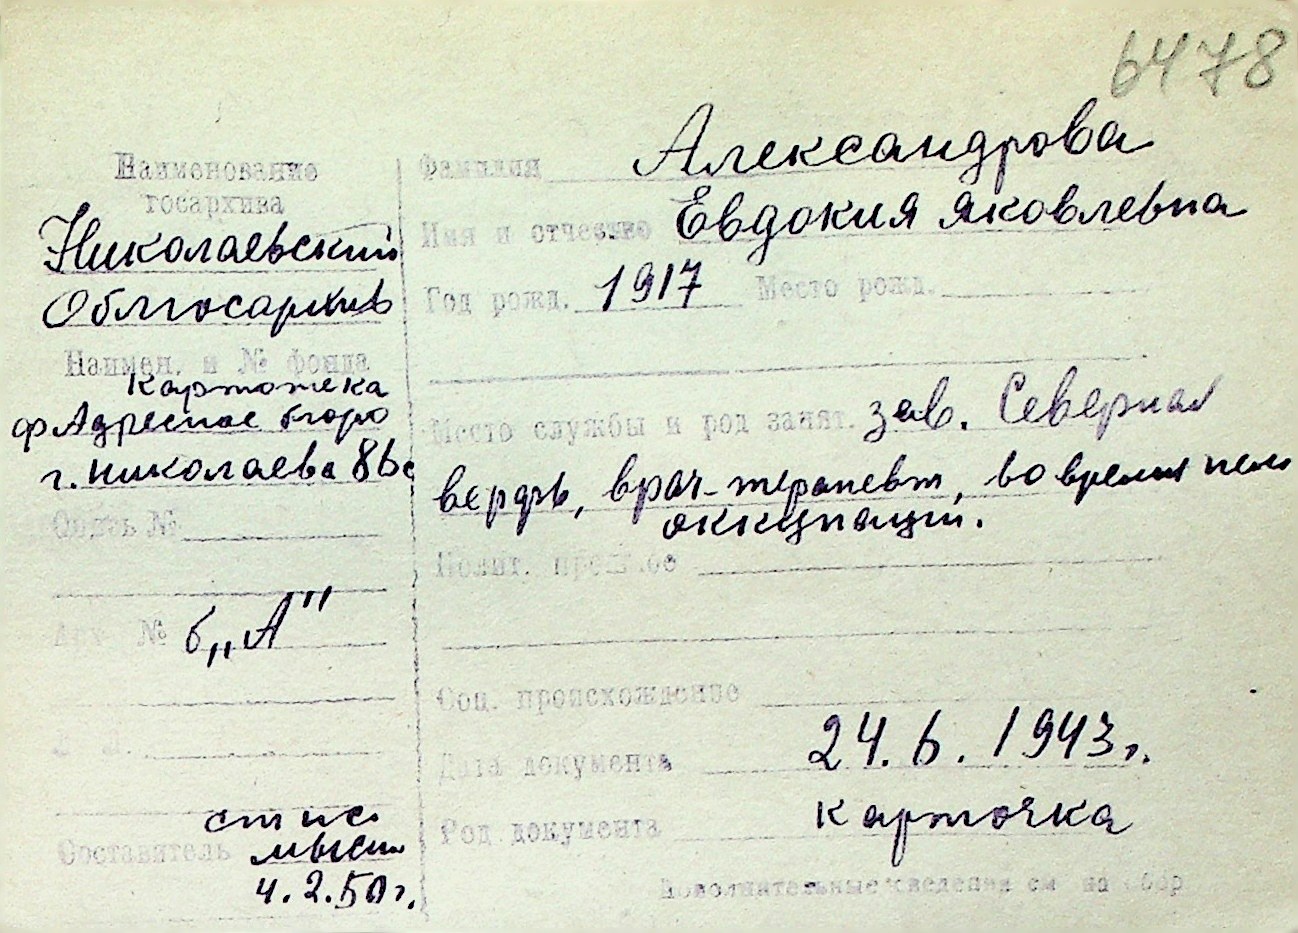 6478
Наименование
госархива
Николаевский
Облгосархив
Наимен. и № фонда
картотека
ф Адресное бюро
г. Николаева
Опись №
Арх №
б„А"
Составитель
4.2.50г.
Фамилия Александрова
Имя и отчество Евдокия Яковлевна
Год рожд. 1917 Место рожд.
Место службы и род занят. зав. Северная
верфь, врач-терапевт, во время нем
оккупации.
Полит. прошлое
Соц. происхождение
Дата документа 24.6.1943г.
Род документа карточка
Дополнительные сведения см на обор